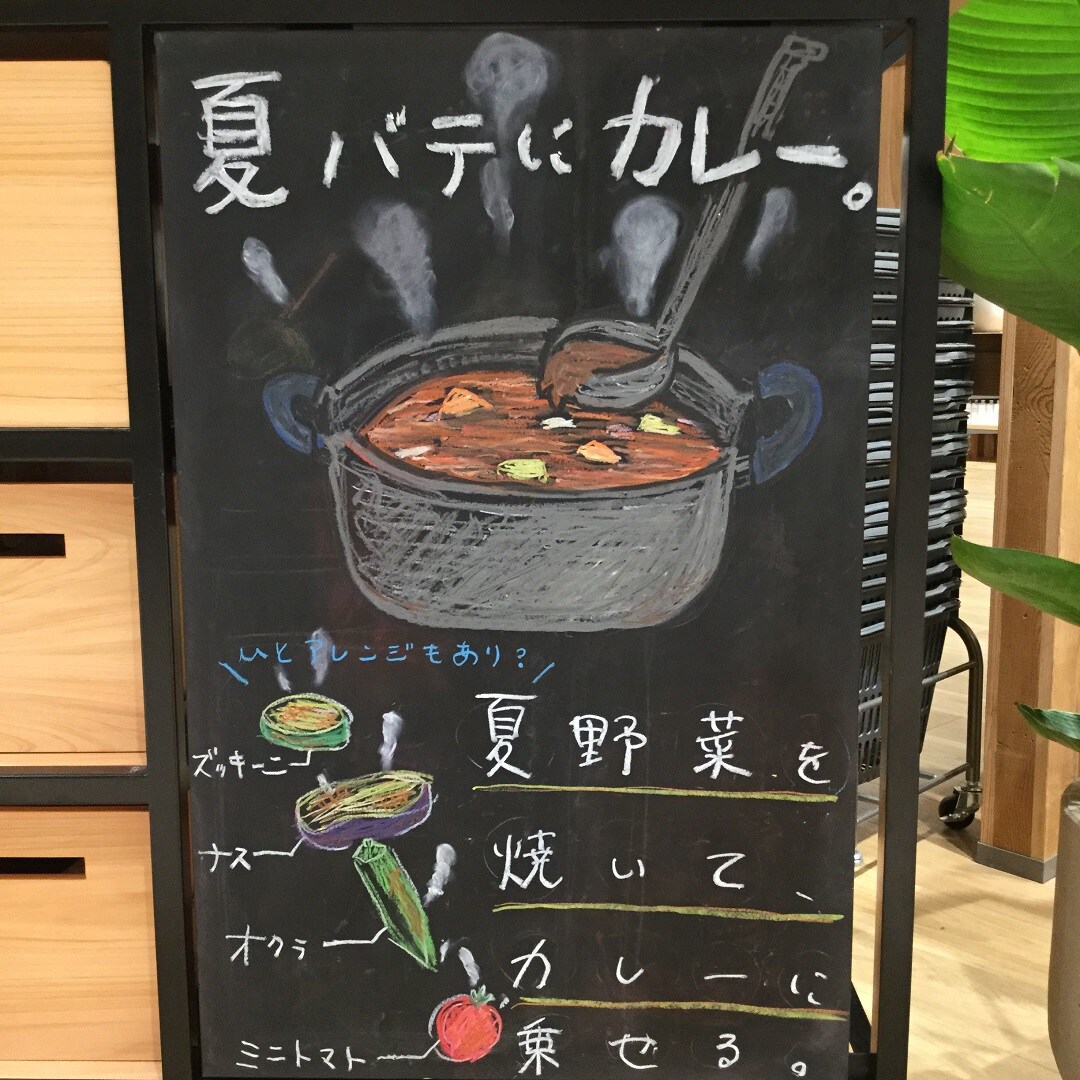 夏バテにカレー。
ひとアレンジもあり?
ズッキーニ
ナス
オクラ
ミニトマト
夏野菜を
焼いて、
カレーに
乗せる。